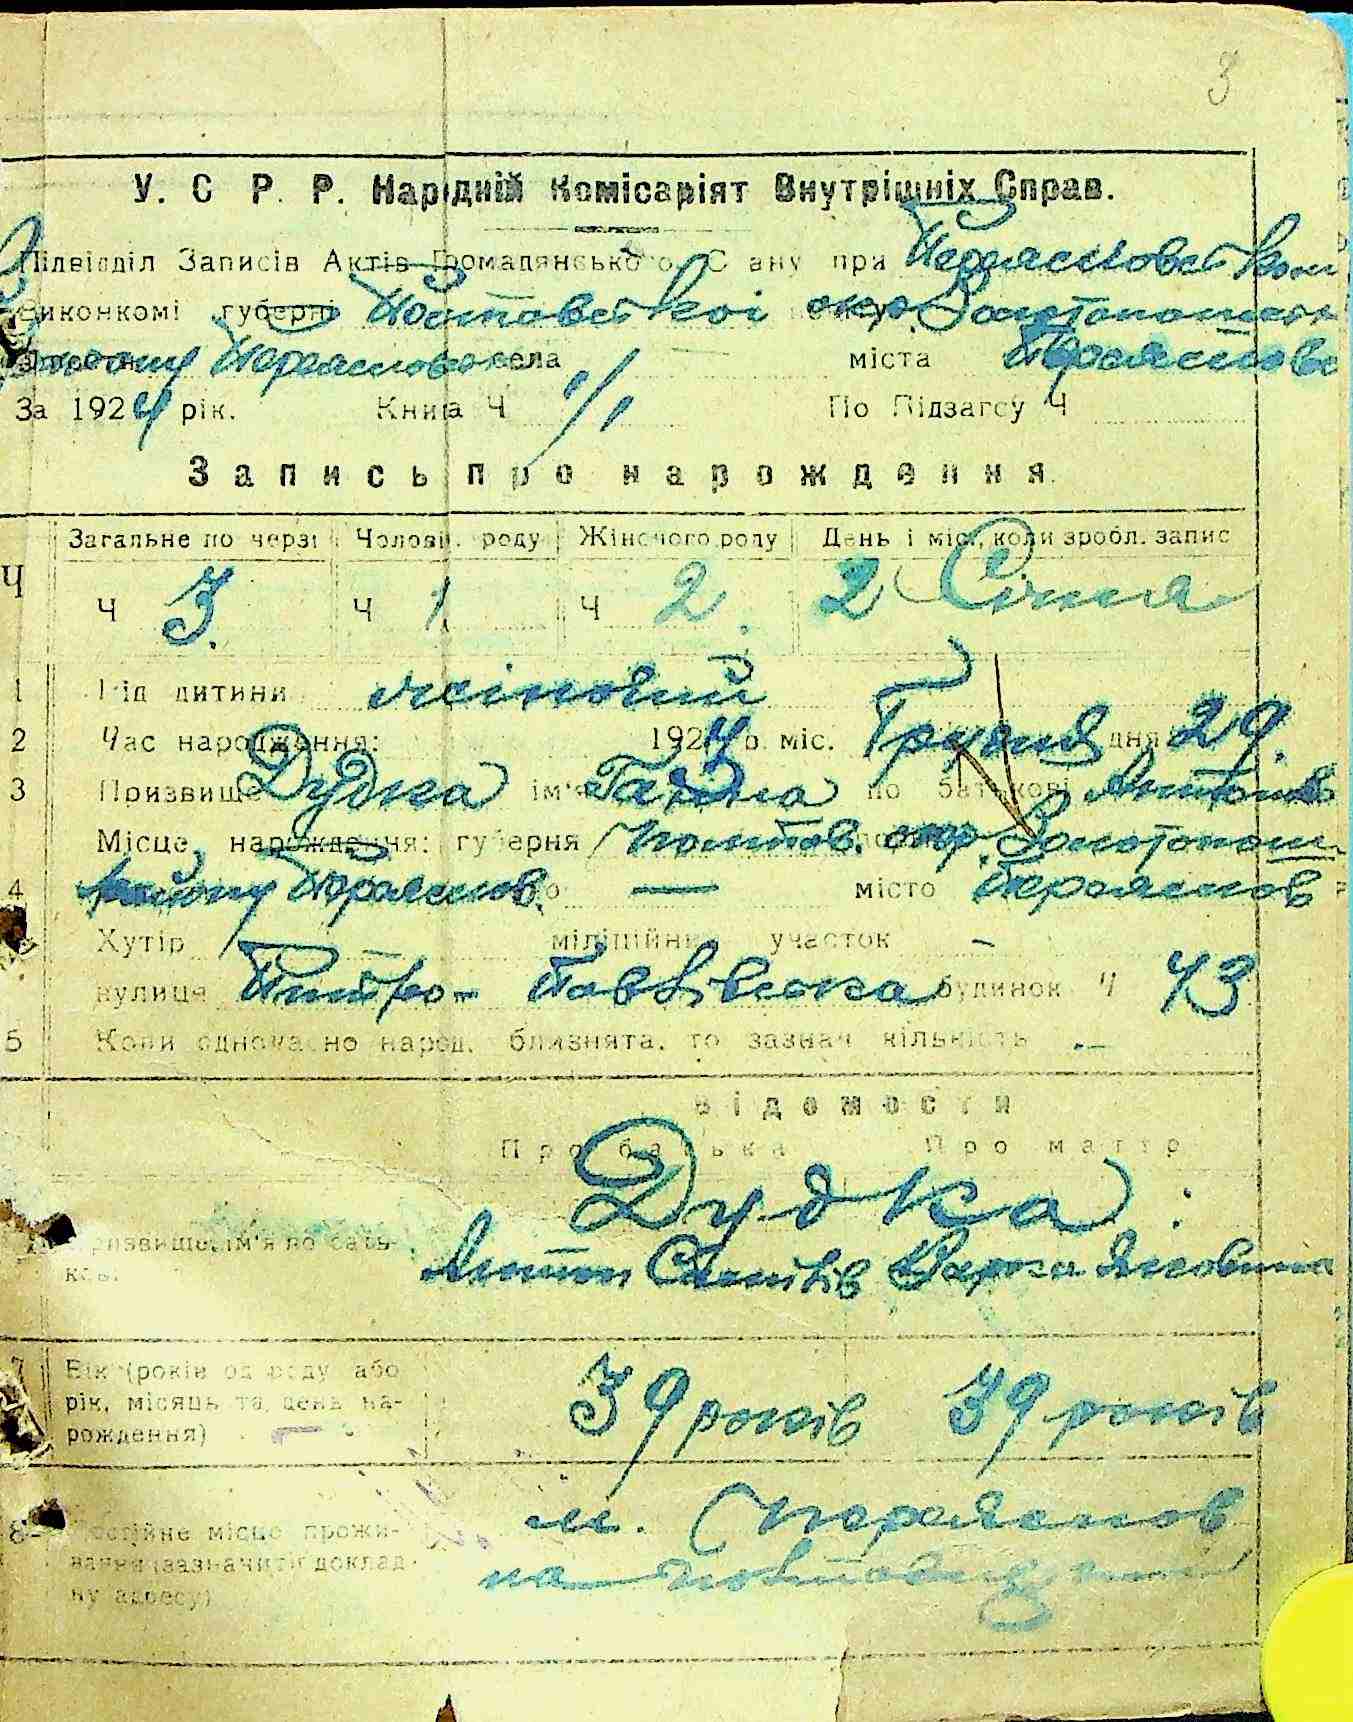 3
У. С Р. Р. Народній Комісаріят Внутрішніх Справ.
Підвідділ Записів Актів Громадянського Стану при
Виконкомі губерні Полтавської окр. Золотоношськ
району Переяслов села — міста Переяслов
За 1924 рік. Книга Ч 1/1 По Підзагсу Ч
Запись про нарождення
Загальне по черзі Чоловіч. роду Жіночого роду День і міс., коли зробл. запис
Ч Ч 3. Ч 1 Ч 2. 2 Січня
1 Рід дитини жіночий
2 Час народження: 1924 р. міс. Грудня дня 29.
3 Призвище Дудка ім'я Ганна по батькові Антонів
Місце нарождення: губерня Полтав. окр. Золотонош.
4 району Переяслов. — місто Переяслов
Хутір — міліційний участок —
вулиця Петро-Павлівська будинок Ч 43
5 Коли одночасно народ. близнята, то зазнач кількість —
Відомости
Про батька Про матір
Дудка
Призвище, ім'я по батькові Антон Яковина
7 Вік (років од роду або
рік, місяць та день на-
рождення) 39 років 39 років
8 Постійне місце прожи- м. Переяслов
вання (зазначити доклад
ну адресу)